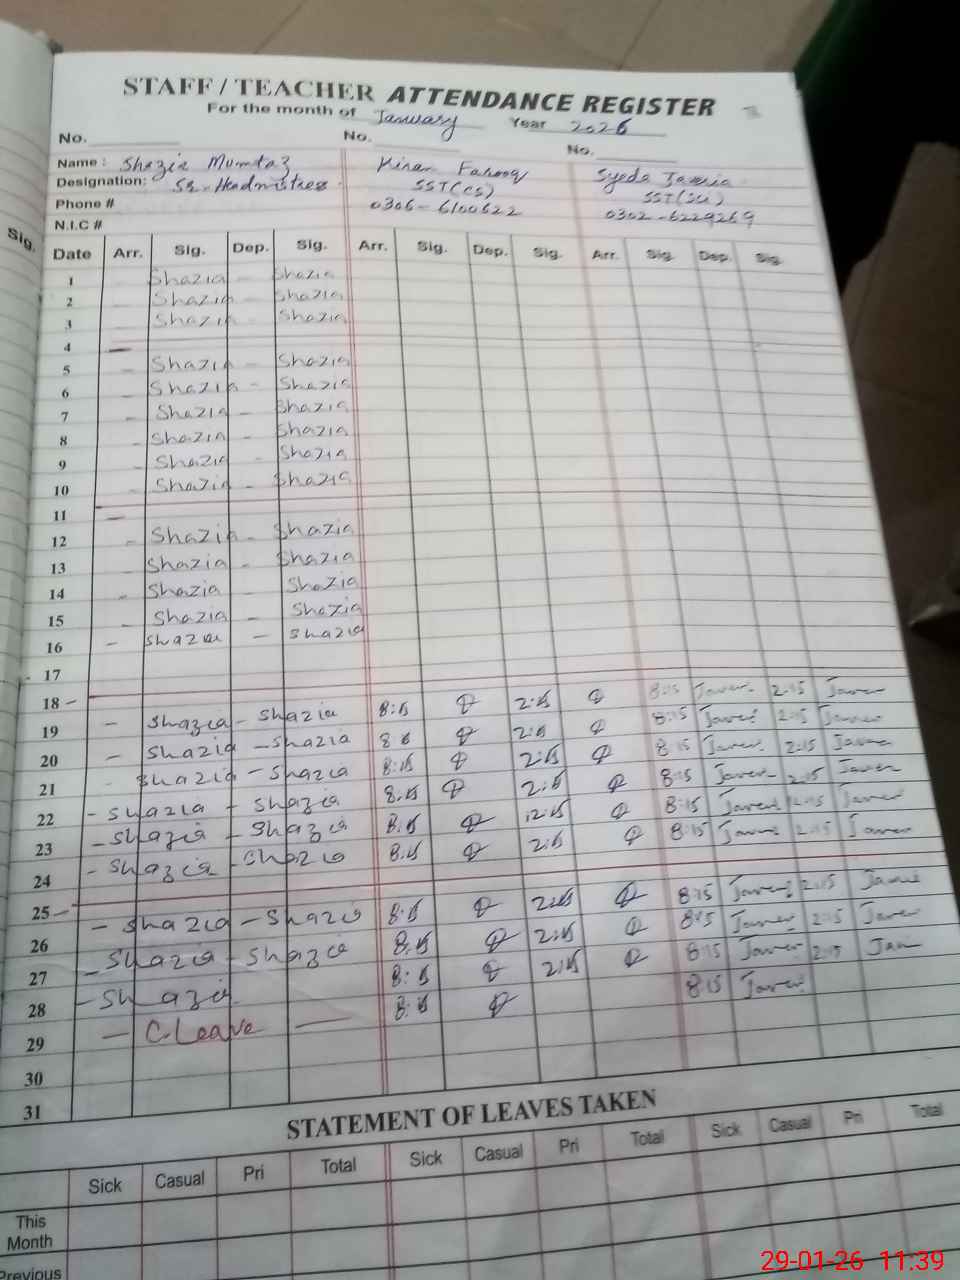 STAFF / TEACHER ATTENDANCE REGISTER
For the month of January Year 2026
No. No. No.
Name: Shazia Mumtaz Kiran Farooq Syeda Javeria
Designation: Sr-Headmistress SST(CS) SST(Sci)
Phone # 0306-6100622 0302-6229269
N.I.C #
Sig.
Date Arr. Sig. Dep. Sig. Arr. Sig. Dep. Sig. Arr. Sig. Dep. Sig.
1 Shazia - Shazia
2 Shazia - Shazia
3 Shazia - Shazia
4 —
5 - Shazia - Shazia
6 - Shazia - Shazia
7 - Shazia - Shazia
8 - Shazia - Shazia
9 - Shazia - Shazia
10 - Shazia - Shazia
11 —
12 - Shazia - Shazia
13 - Shazia - Shazia
14 - Shazia Shazia
15 - Shazia Shazia
16 - Shazia - Shazia
17
18 -
19 - Shazia - Shazia 8:15 2:15 8:15 Javer 2:15 Javer
20 - Shazia - Shazia 8:15 2:15 8:15 Javer 2:15 Javer
21 - Shazia - Shazia 8:15 2:15 8:15 Javer 2:15 Javer
22 - Shazia - Shazia 8:15 2:15 8:15 Javer 2:15 Javer
23 - Shazia - Shazia 8:15 2:15 8:15 Javer 2:15 Javer
24 - Shazia - Shazia 8:15 2:15 8:15 Javer 2:15 Javer
25 -
26 - Shazia - Shazia 8:15 2:15 8:15 Javer 2:15 Javer
27 - Shazia - Shazia 8:15 2:15 8:15 Javer 2:15 Javer
28 - Shazia 8:15 2:15 8:15 Javer 2:15 Jav
29 - C.Leave — 8:15 8:15 Javer
30
31
STATEMENT OF LEAVES TAKEN
Sick Casual Pri Total Sick Casual Pri Total Sick Casual Pri Total
This Month
Previous
29-01-26 11:39